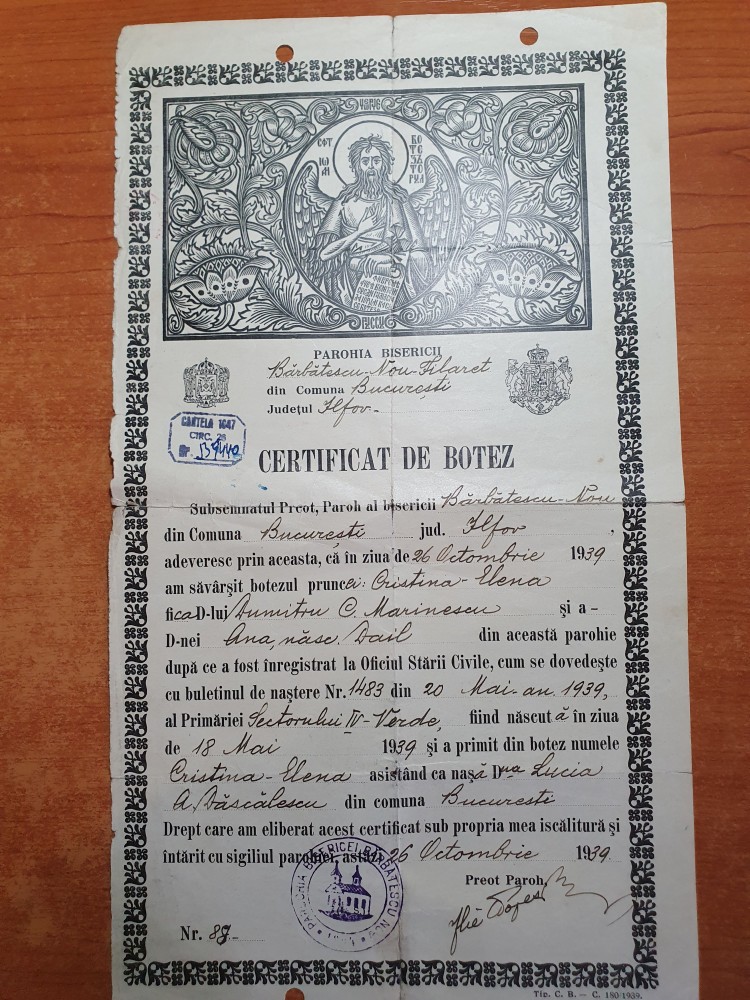 СФТ
ІѠАН
БОТЕЗЪТОРУЛ
PAROHIA BISERICII
Bărbătescu-Nou-Filaret
din Comuna București
Județul Ilfov-
CARTELA 1947
CIRC. 26
Nr.
CERTIFICAT DE BOTEZ
Subsemnatul Preot, Paroh al bisericii Bărbătescu-Nou
din Comuna București jud. Ilfov,
adeveresc prin aceasta, că în ziua de 26 Octombrie 1939
am săvârșit botezul pruncei: Cristina-Elena
fica D-lui Dumitru C. Marinescu și a-
D-nei Ana, născ. Dail din această parohie
după ce a fost înregistrat la Oficiul Stării Civile, cum se dovedește
cu buletinul de naștere Nr. 1483 din 20 Mai-an. 1939,
al Primăriei Sectorului IV-Verde, fiind născută în ziua
de 18 Mai 1939 și a primit din botez numele
Cristina-Elena asistând ca nașă D-na Lucia
A. Dăscălescu din comuna București
Drept care am eliberat acest certificat sub propria mea iscălitură și
întărit cu sigiliul parohiei, astăzi 26 Octombrie 1939.
PAROHIA BISERICEI BĂRBĂTESCU NOU
Preot Paroh,
Ilie
Nr. 87-
Tip. C. B. — C. 180/1939.